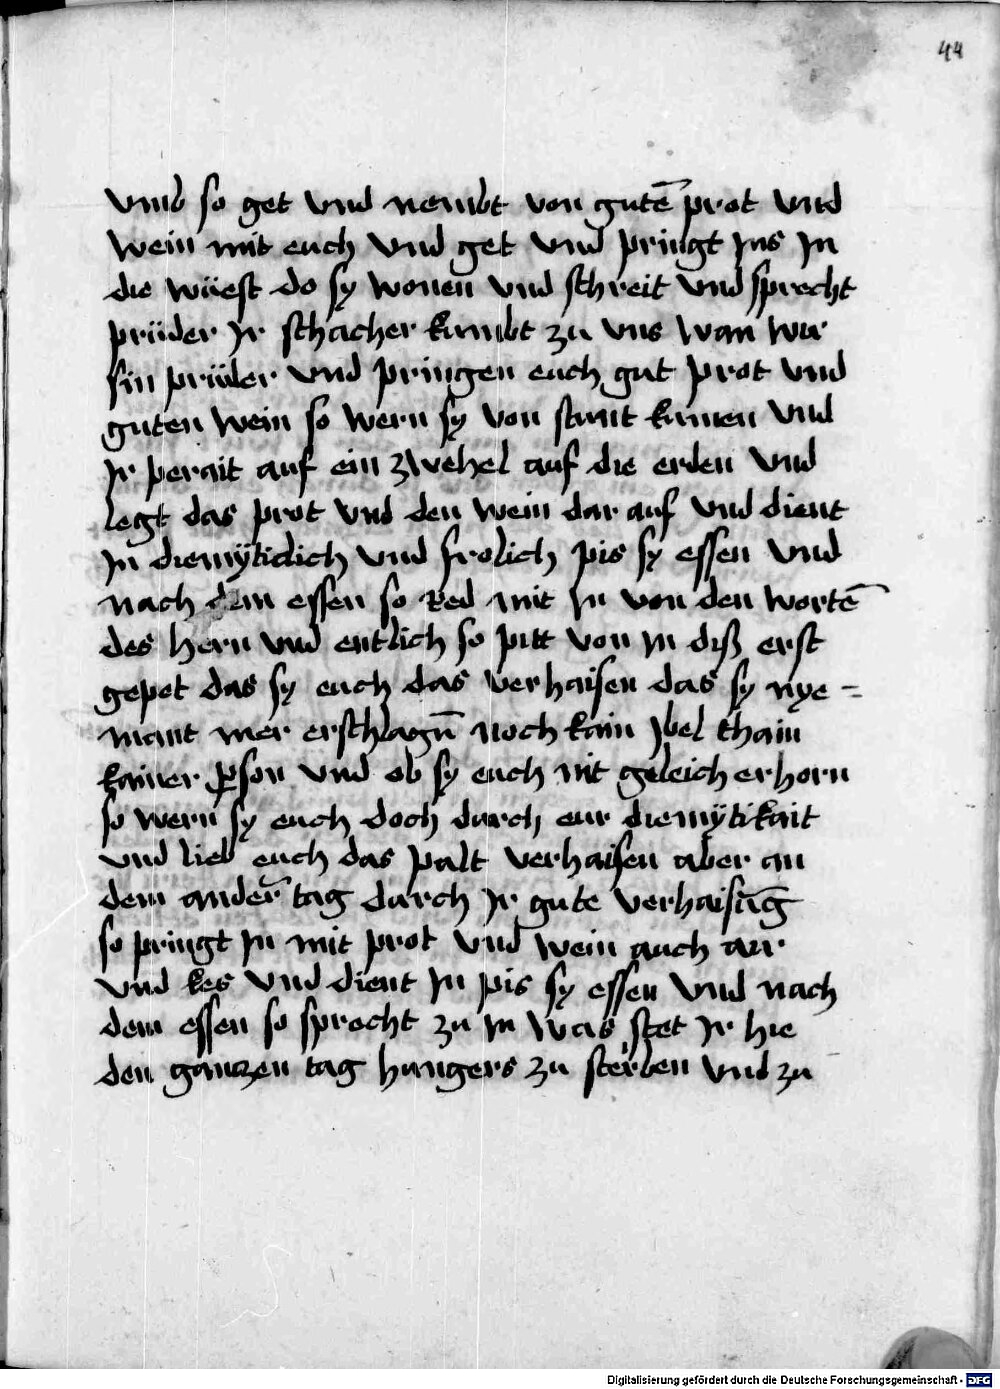 44
vmb so get vnd nembt von gutē prot vnd
wein mit euch vnd get vnd pringt Ins In
die wüest do sy wonen vnd schreit vnd sprecht
prüder Ir schacher kumbt zu vns wan wir
sin prüder vnd pringen euch gut prot vnd
guten wein so wern sy von stunt kumen vnd
Ir perait auf ein zwehel auf die erden vnd
legt das prot vnd den wein dar auf vnd dient
In diemÿticlich vnd frolich pis sy essen vnd
nach dem essen so Red mit In von den wortē
des hern vnd entlich so pitt von In diß erst
gepet das sy euch das verhaisen das sy nye =
mant mer erschlagn̄ noch kain Ybel thain
kainer ꝑson vnd ob sy euch nit geleich erhorn
so wern sy euch doch durch eur diemÿtikait
vnd lieb euch das palt verhaisen aber an
dem ander̄ tag durch Ir gute verhaisūg
so pringt In mit prot vnd wein auch air
vnd kes vnd dient In pis sy essen vnd nach
dem essen so sprecht zu In was stet Ir hie
den ganczen tag hungers zu sterben vnd zu
Digitalisierung gefördert durch die Deutsche Forschungsgemeinschaft - DFG